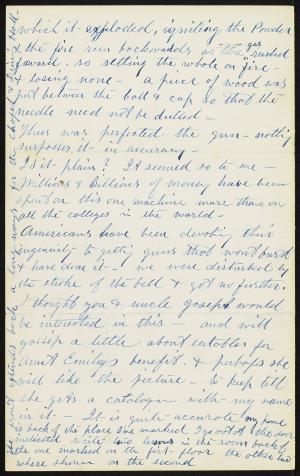 which it exploded, igniting the Powder
& the fire run backwards as the gas rushed
forward. so setting the whole on fire
& losing none - a piece of wood was
put between the ball & cap so that the
needle need not be dulled -
Thus was perfected the gun - nothing
surpasses it in accuracy -
Is it plain? It seemed so to me -
Millions & Billions of money have been
spent on this one machine more than on
all the colleges in the world -
Americans have been devoting their
ingenuity to getting guns that wont burst
& have done it - we were disturbed by
the stroke of the bell & got no further.
I thought you & uncle Joseph would
be interested in this - and will
gossip a little about eatables for
Aunt Emilys benefit. & perhaps she
will like the picture - to keep till
she gets a catalogue with my name
in it - It is quite accurate my home
is back of the place I've marked I go out of the door
indicated recite two lessons in the room back of
the one marked in the first floor the other two
where shown on the second